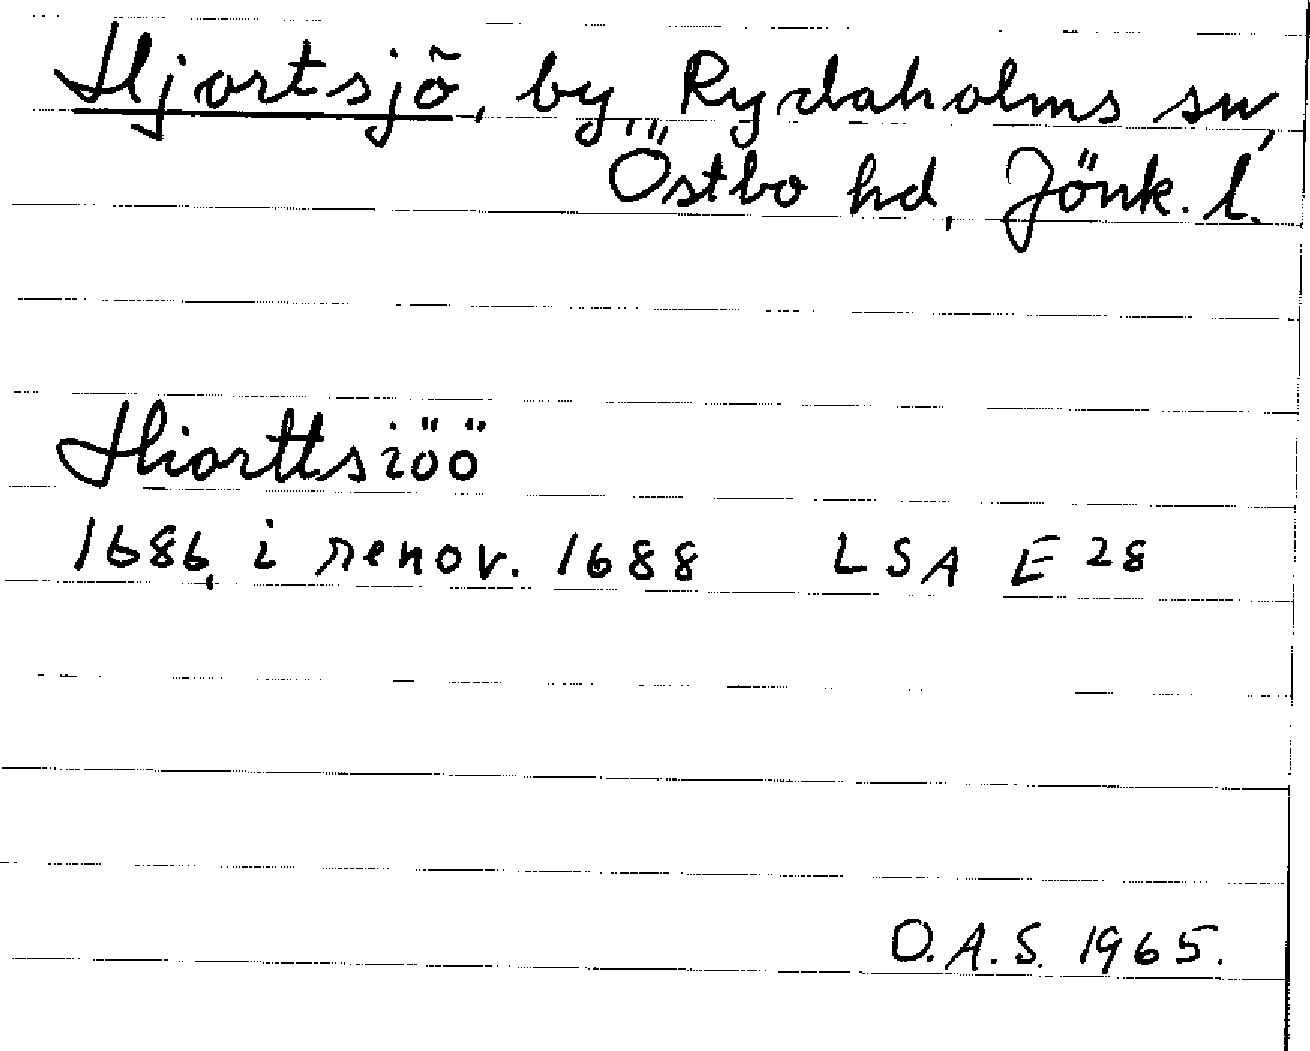 Hjortsjö, by, Rydaholms sn,
Östbo hd, Jönk. l.
Hiorttsiöö
1686, i renov. 1688 LSA E 28
O.A.S. 1965.